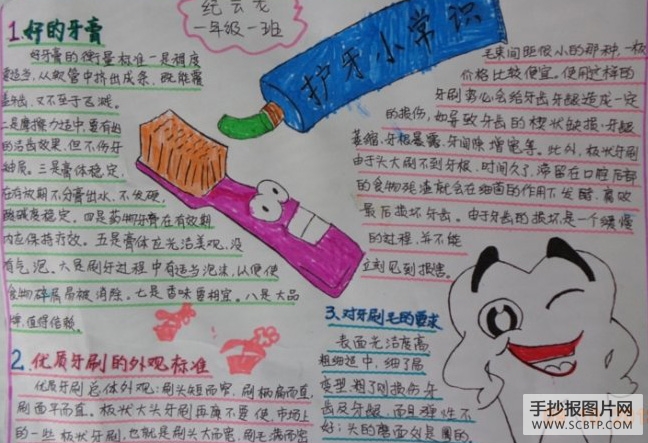 纪云龙
一年级一班
护牙小常识
1.好的牙膏
好牙膏的衡量标准一是稠度
要适当，从软管中挤出成条，既能覆
盖牙齿，又不至于飞溅。
二是摩擦力适中，要有好
的洁齿效果，但不伤牙
釉质。三是膏体稳定，
在有效期不分膏出水，不发硬，
酸碱度稳定。四是药物牙膏在有效期
内应保持疗效。五是膏体应光洁美观，没
有气泡。六是刷牙过程中有适当泡沫，以便使
食物碎屑易被消除。七是香味要相宜。八是大品
牌，值得信赖
2.优质牙刷的外观标准
优质牙刷总体外观：刷头短而窄，刷柄扁而直，
刷面平而直。板状大头牙刷再廉不要使，市场上
的一些板状牙刷，也就是刷头大而宽，刷毛满而密
毛束间距很小的那种，一般
价格比较便宜。使用这样的
牙刷势必会给牙齿牙龈造成一定
的损伤，如导致牙齿的楔状缺损，牙龈
萎缩，牙根暴露，牙间隙增宽等。此外，板状牙刷
由于头大刷不到牙根，时间久了，滞留在口腔后部
的食物残渣就会在细菌的作用下发酵、腐败
最后损坏牙齿。由于牙齿的损坏是一个缓慢
的过程，并不能
立刻见到损害。
3、对牙刷毛的要求
表面光洁度高
粗细适中，细了易
变型，粗了则损伤牙
齿及牙龈，而且弹性不
好；头的磨面必是圆的
手抄报图片网
WWW.SCBTP.COM